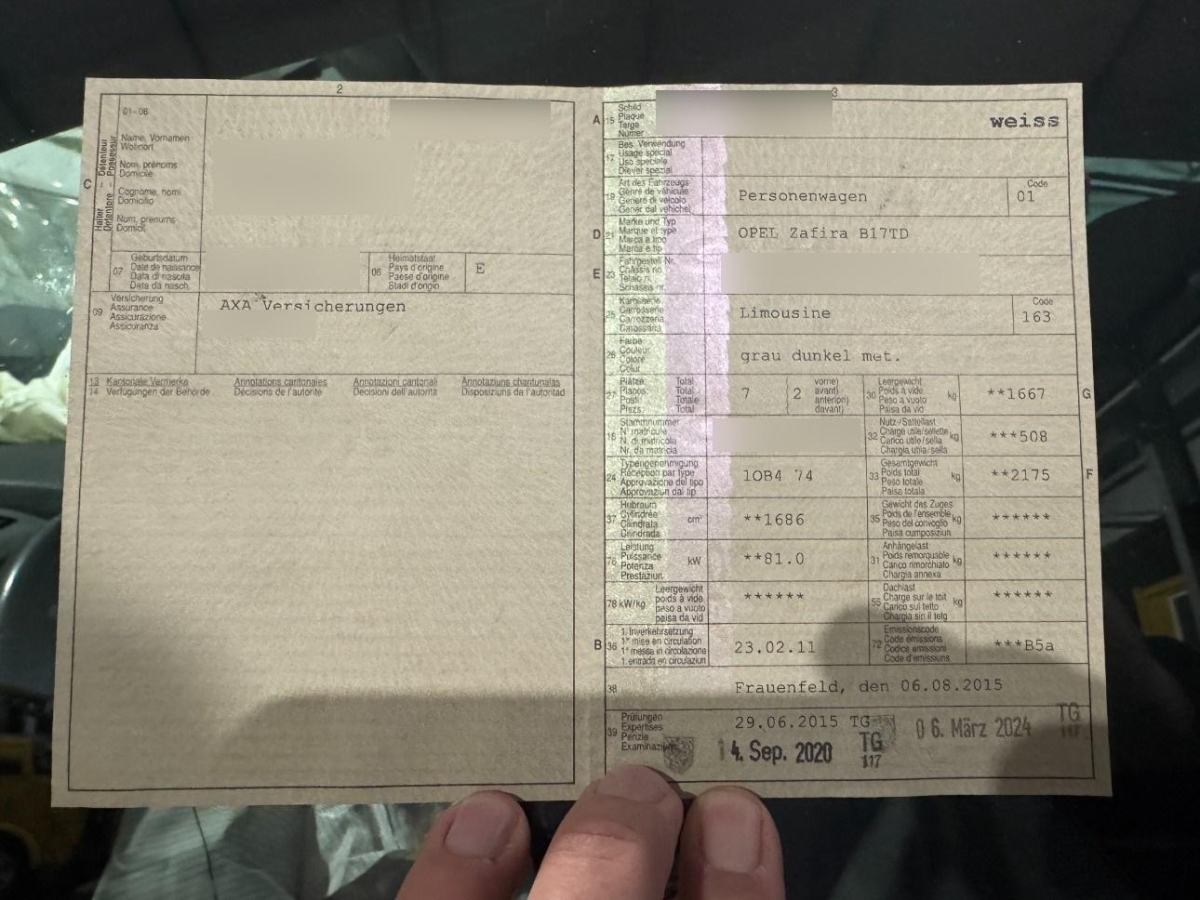 2
01-06
C
Halter Détenteur
Detentore Possessur
Name, Vornamen
Wohnort
Nom, prénoms
Domicile
Cognome, nomi
Domicilio
Num, prenums
Domicil
07
Geburtsdatum
Date de naissance
Data di nascita
Data da nasch.
06
Heimatstaat
Pays d'origine
Paese d'origine
Stadi d'origin
E
09
Versicherung
Assurance
Assicurazione
Assicuranza
AXA Versicherungen
13
14
Kantonale Vermerke
Verfügungen der Behörde
Annotations cantonales
Décisions de l'autorité
Annotazioni cantonali
Decisioni dell'autorità
Annotaziuns chantunalas
Disposiziuns da l'autoritad
3
A
15
Schild
Plaque
Targa
Numer
weiss
17
Bes. Verwendung
Usage spécial
Uso speciale
Diever spezial
19
Art des Fahrzeugs
Genre de véhicule
Genere di veicolo
Gener dal vehichel
Personenwagen
Code
01
D
21
Marke und Typ
Marque et type
Marca e tipo
Marca e tip
OPEL Zafira B17TD
E
23
Fahrgestell-Nr.
Châssis no
Telaio n.
Schassis nr.
25
Karosserie
Carrosserie
Carrozzeria
Carossaria
Limousine
Code
163
26
Farbe
Couleur
Colore
Colur
grau dunkel met.
27
Plätze: Total
Places: Total
Posti: Totale
Plazs: Total
7
2
vorne)
avant)
anteriori)
davant)
30
Leergewicht
Poids à vide
Peso a vuoto
Paisa da vid
kg
**1667
G
18
Stammnummer
N° matricule
N. di matricola
Nr. da matricla
32
Nutz-/Sattellast
Charge utile/sellette
Carico utile/sella
Chargia utila/sella
kg
***508
24
Typengenehmigung
Réception par type
Approvazione del tipo
Approvaziun dal tip
1OB4 74
33
Gesamtgewicht
Poids total
Peso totale
Paisa totala
kg
**2175
F
37
Hubraum
Cylindrée
Cilindrata
Cilindrada
cm³
**1686
35
Gewicht des Zuges
Poids de l'ensemble
Peso del convoglio
Paisa cumposiziun
kg
******
76
Leistung
Puissance
Potenza
Prestaziun
kW
**81.0
31
Anhängelast
Poids remorquable
Carico rimorchiato
Chargia annexa
kg
******
78 kW/kg
Leergewicht
poids à vide
peso a vuoto
paisa da vid
******
55
Dachlast
Charge sur le toit
Carico sul tetto
Chargia sin il tetg
kg
******
B
36
1. Inverkehrsetzung
1re mise en circulation
1a messa in circolazione
1. entrada en circulaziun
23.02.11
72
Emissionscode
Code émissions
Codice emissioni
Code d'emissiuns
***B5a
38
Frauenfeld, den 06.08.2015
39
Prüfungen
Expertises
Perizie
Examinaziuns
29.06.2015 TG
14. Sep. 2020
TG
117
06. März 2024
TG
117